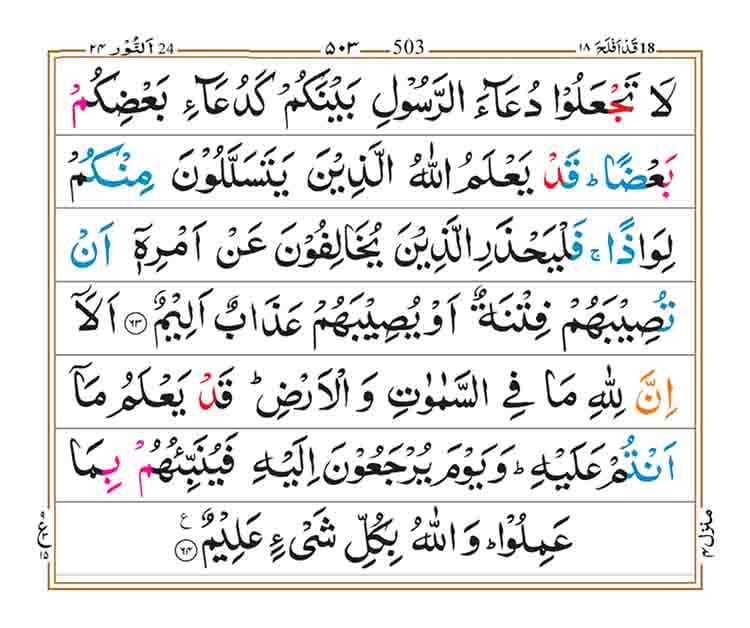 قَدْ اَفْلَحَ ١٨ 18 503 ٥٠٣ 24 اَلنُّوْر ٢٤
لَا تَجْعَلُوْا دُعَآءَ الرَّسُوْلِ بَيْنَكُمْ كَدُعَآءِ بَعْضِكُمْ
بَعْضًا ؕ قَدْ يَعْلَمُ اللّٰهُ الَّذِيْنَ يَتَسَلَّلُوْنَ مِنْكُمْ
لِوَاذًا ۚ فَلْيَحْذَرِ الَّذِيْنَ يُخَالِفُوْنَ عَنْ اَمْرِهٖۤ اَنْ
تُصِيْبَهُمْ فِتْنَةٌ اَوْ يُصِيْبَهُمْ عَذَابٌ اَلِيْمٌ ﴿٦٣﴾ اَلَاۤ
اِنَّ لِلّٰهِ مَا فِي السَّمٰوٰتِ وَ الْاَرْضِ ؕ قَدْ يَعْلَمُ مَاۤ
اَنْتُمْ عَلَيْهِ ؕ وَ يَوْمَ يُرْجَعُوْنَ اِلَيْهِ فَيُنَبِّئُهُمْ بِمَا
عَمِلُوْا ؕ وَ اللّٰهُ بِكُلِّ شَيْءٍ عَلِيْمٌ ﴿٦٤﴾ ع
منزل ٤
ع ١٥